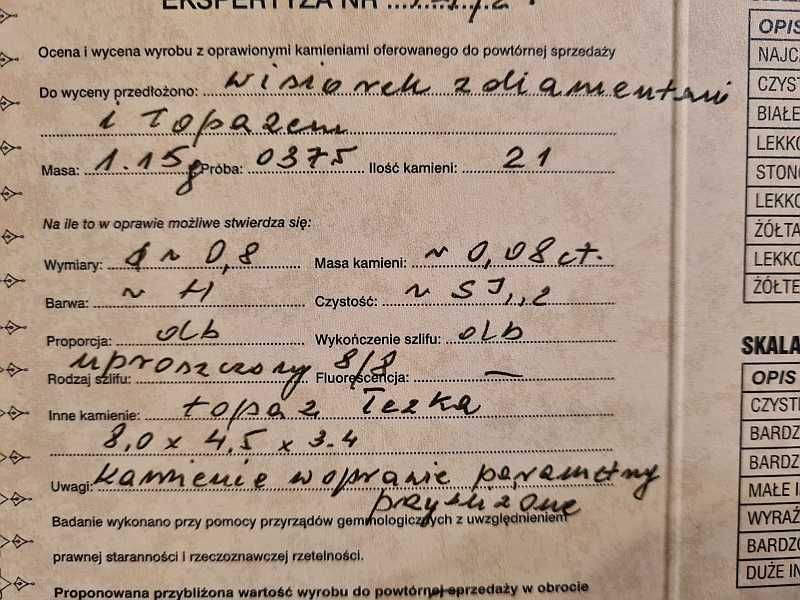 EKSPERTYZA NR
Ocena i wycena wyrobu z oprawionymi kamieniami oferowanego do powtórnej sprzedaży
Do wyceny przedłożono: wisiorek z diamentami
i Topazem
Masa: 1.15g Próba: 0375 Ilość kamieni: 21
Na ile to w oprawie możliwe stwierdza się:
Wymiary: ~ 0,8 Masa kamieni: ~ 0,08 ct.
Barwa: ~ H Czystość: ~ SI1,2
Proporcja: db Wykończenie szlifu: db
Rodzaj szlifu: uproszczony 8/8 Fluorescencja: —
Inne kamienie: topaz łezka
8,0 x 4,5 x 3.4
Uwagi: Kamienie w oprawie parametry
przybliżone
Badanie wykonano przy pomocy przyrządów gemmologicznych z uwzględnieniem
prawnej staranności i rzeczoznawczej rzetelności.
Proponowana przybliżona wartość wyrobu do powtórnej sprzedaży w obrocie
OPIS
NAJCZ
CZYST
BIAŁE
LEKKO
STONO
LEKKO
ŻÓŁTA
LEKKO
ŻÓŁTE
SKALA
OPIS
CZYSTE
BARDZ
BARDZ
MAŁE I
WYRAŹ
BARDZO
DUŻE IN